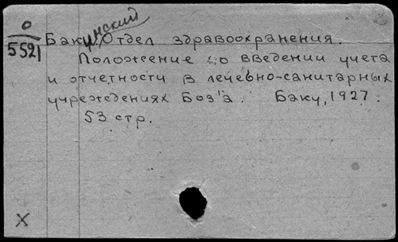 О
5521
Бакинский Отдел здравоохранения.
Положение о введении учета
и отчетности в лечебно-санитарных
учреждениях Боз'а. Баку, 1927.
53 стр.
X